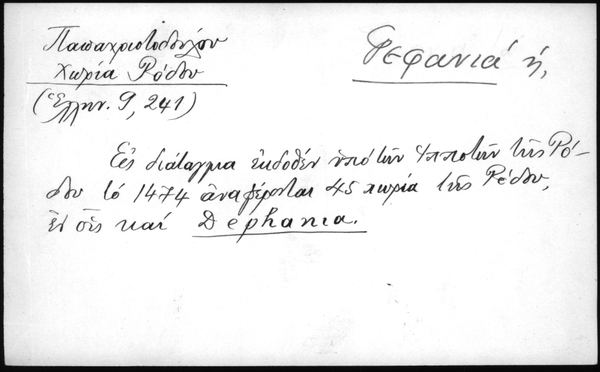 Παπαχριστοδούλου
Χωριά Ρόδου
(Ἑλλην. 9, 241)
Ψεφανιά ἡ,
Εἰς διάταγμα ἐκδοθέν ὑπό τῶν Ἱπποτῶν τῆς Ρό-
δου τό 1474 ἀναφέρονται 45 χωριά τῆς Ρόδου,
ἐν οἷς καί Dephania.